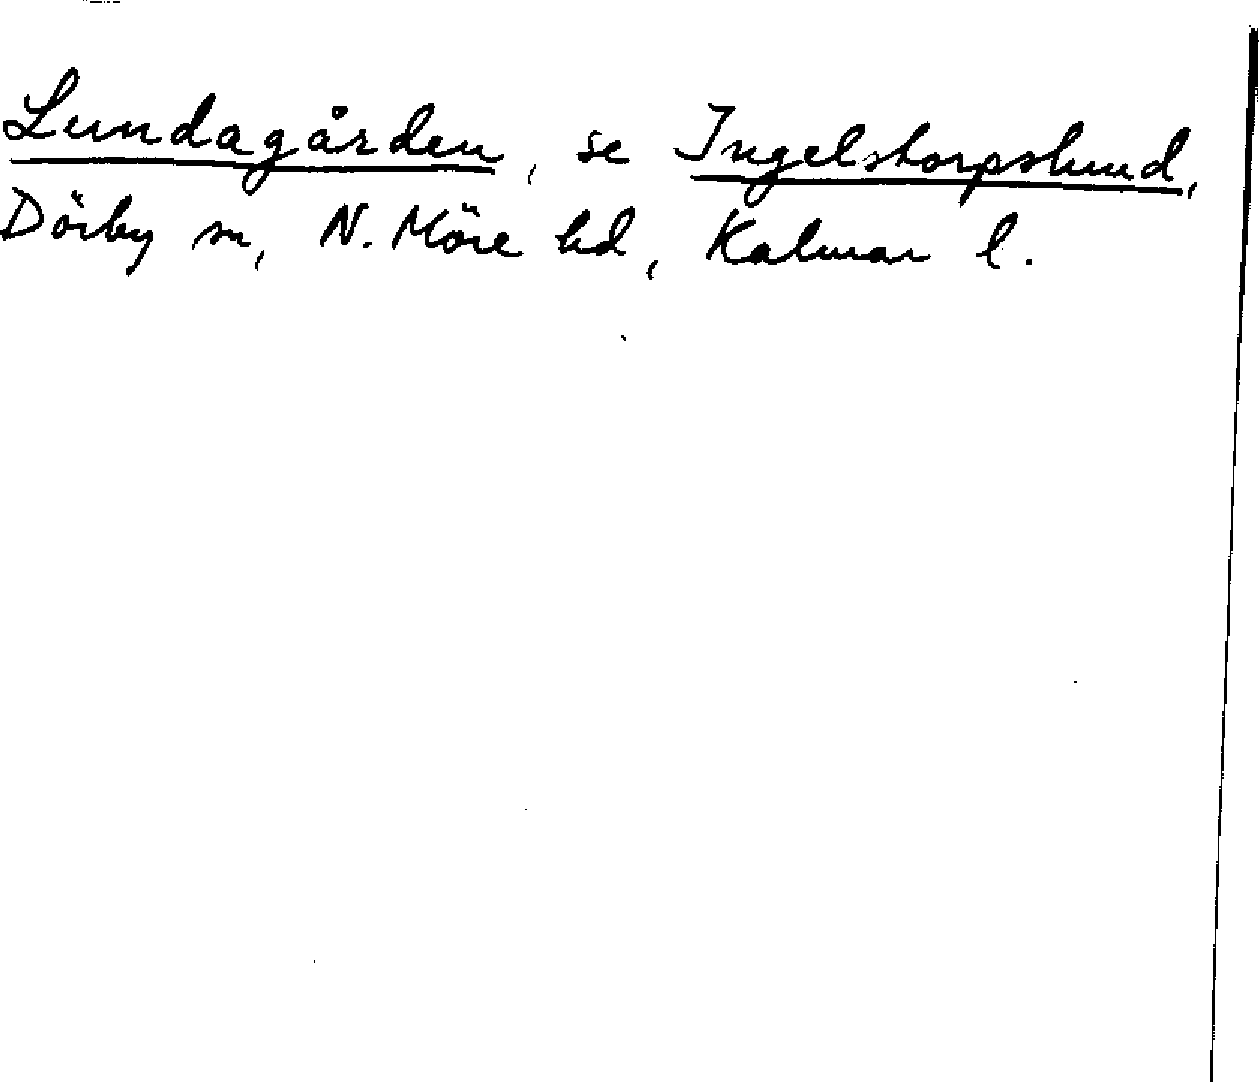 Lundagården, se Ingelstorpslund,
Dörby sn, N. Möre hd, Kalmar l.